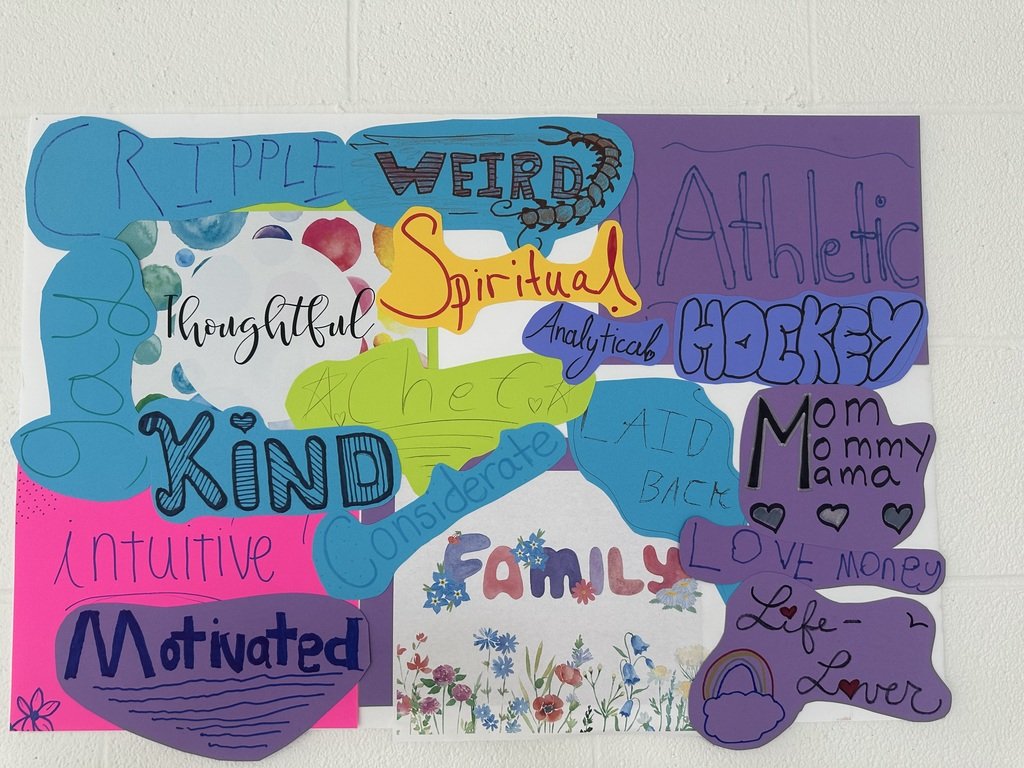 CRIPPLE
WEIRD
Athletic
Thoughtful
Spiritual!
Analytical
HOCKEY
CheC
KIND
Considerate
LAID
BACK
Mom
Mommy
Mama
intuitive
FAMILY
LOVE MONEY
Motivated
Life-
Lover